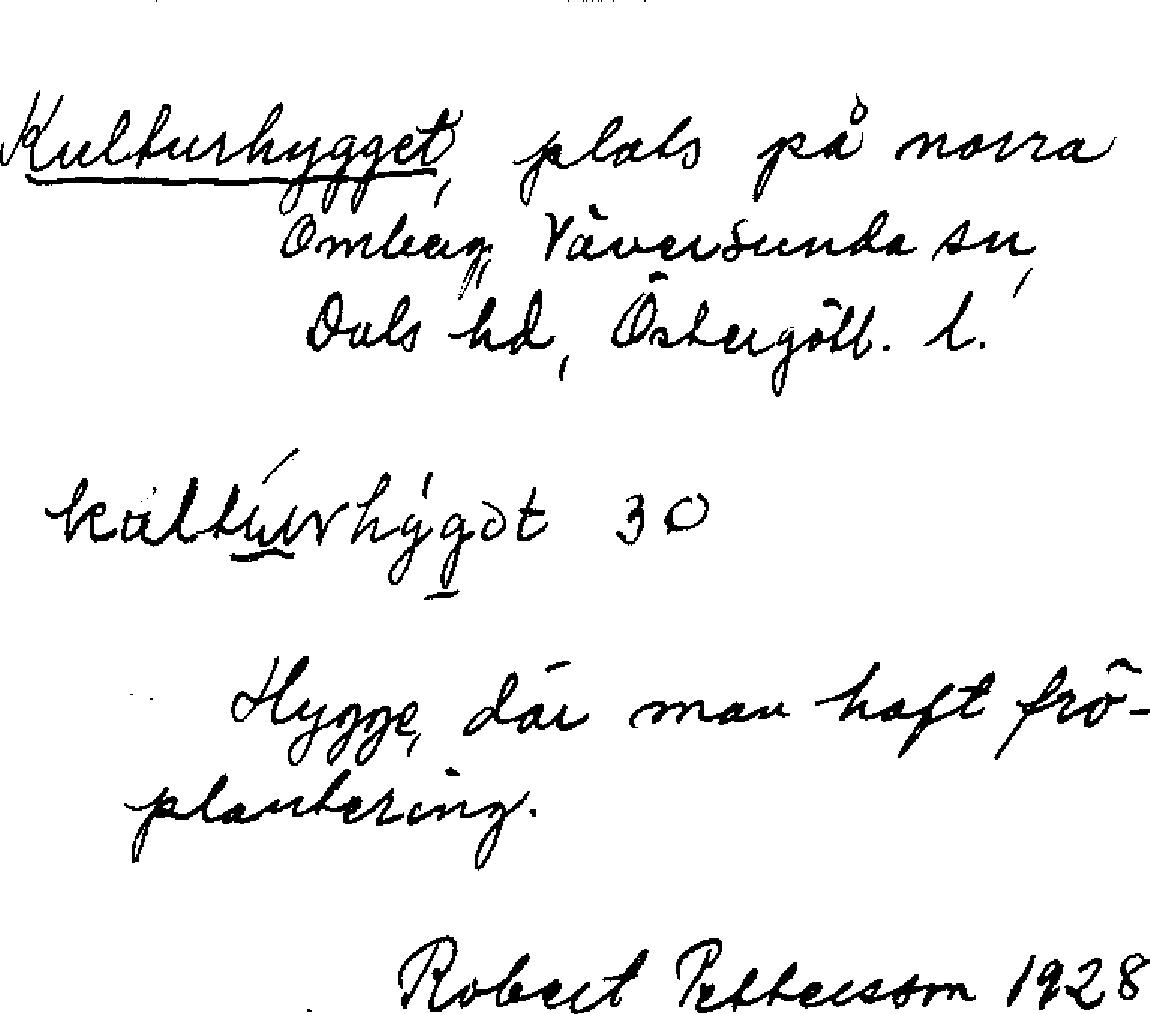 Kulturhygget, plats på norra
Omberg, Väversunda sn,
Dals hd, Östergötl. l.
kultúrhýgət 30
Hygge, där man haft frö-
plantering.
Robert Pettersson 1928